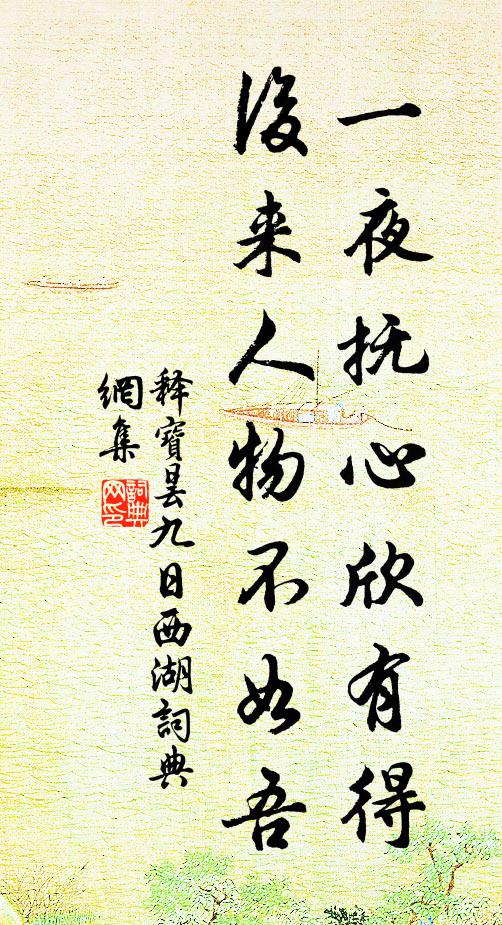 一夜抚心欣有得
后来人物不如吾
释寶昙九日西湖詞典
網集
詞典
网印